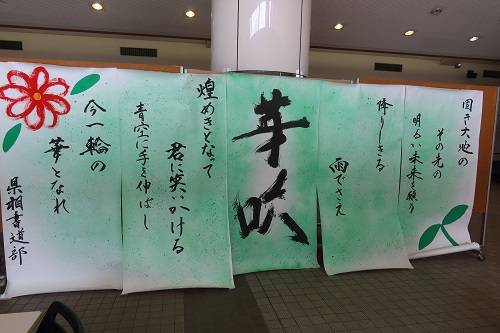 固き大地の
その先の
明るい未来を願う
降りしきる
雨でさえ
華咲
煌めきとなって
君に笑いかける
青空に手を伸ばし
今一輪の
華となれ
県相書道部